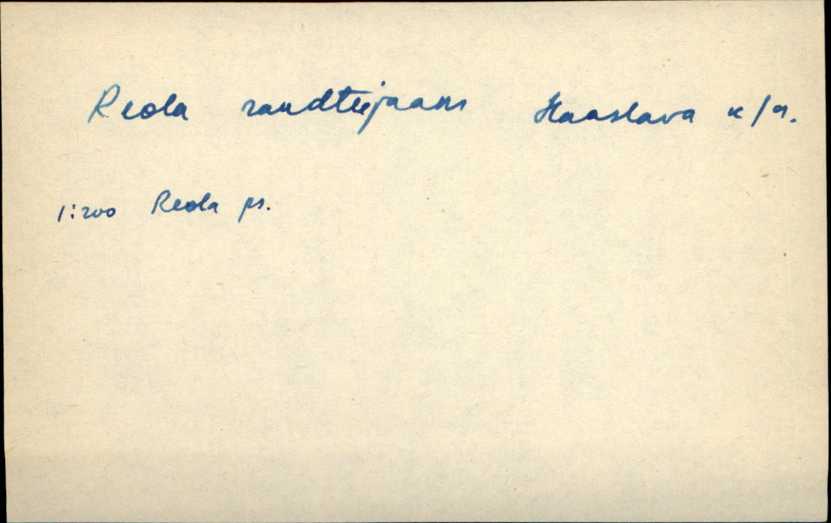 Reola raudteejaam Haaslava k/n.
1:200 Reola ps.